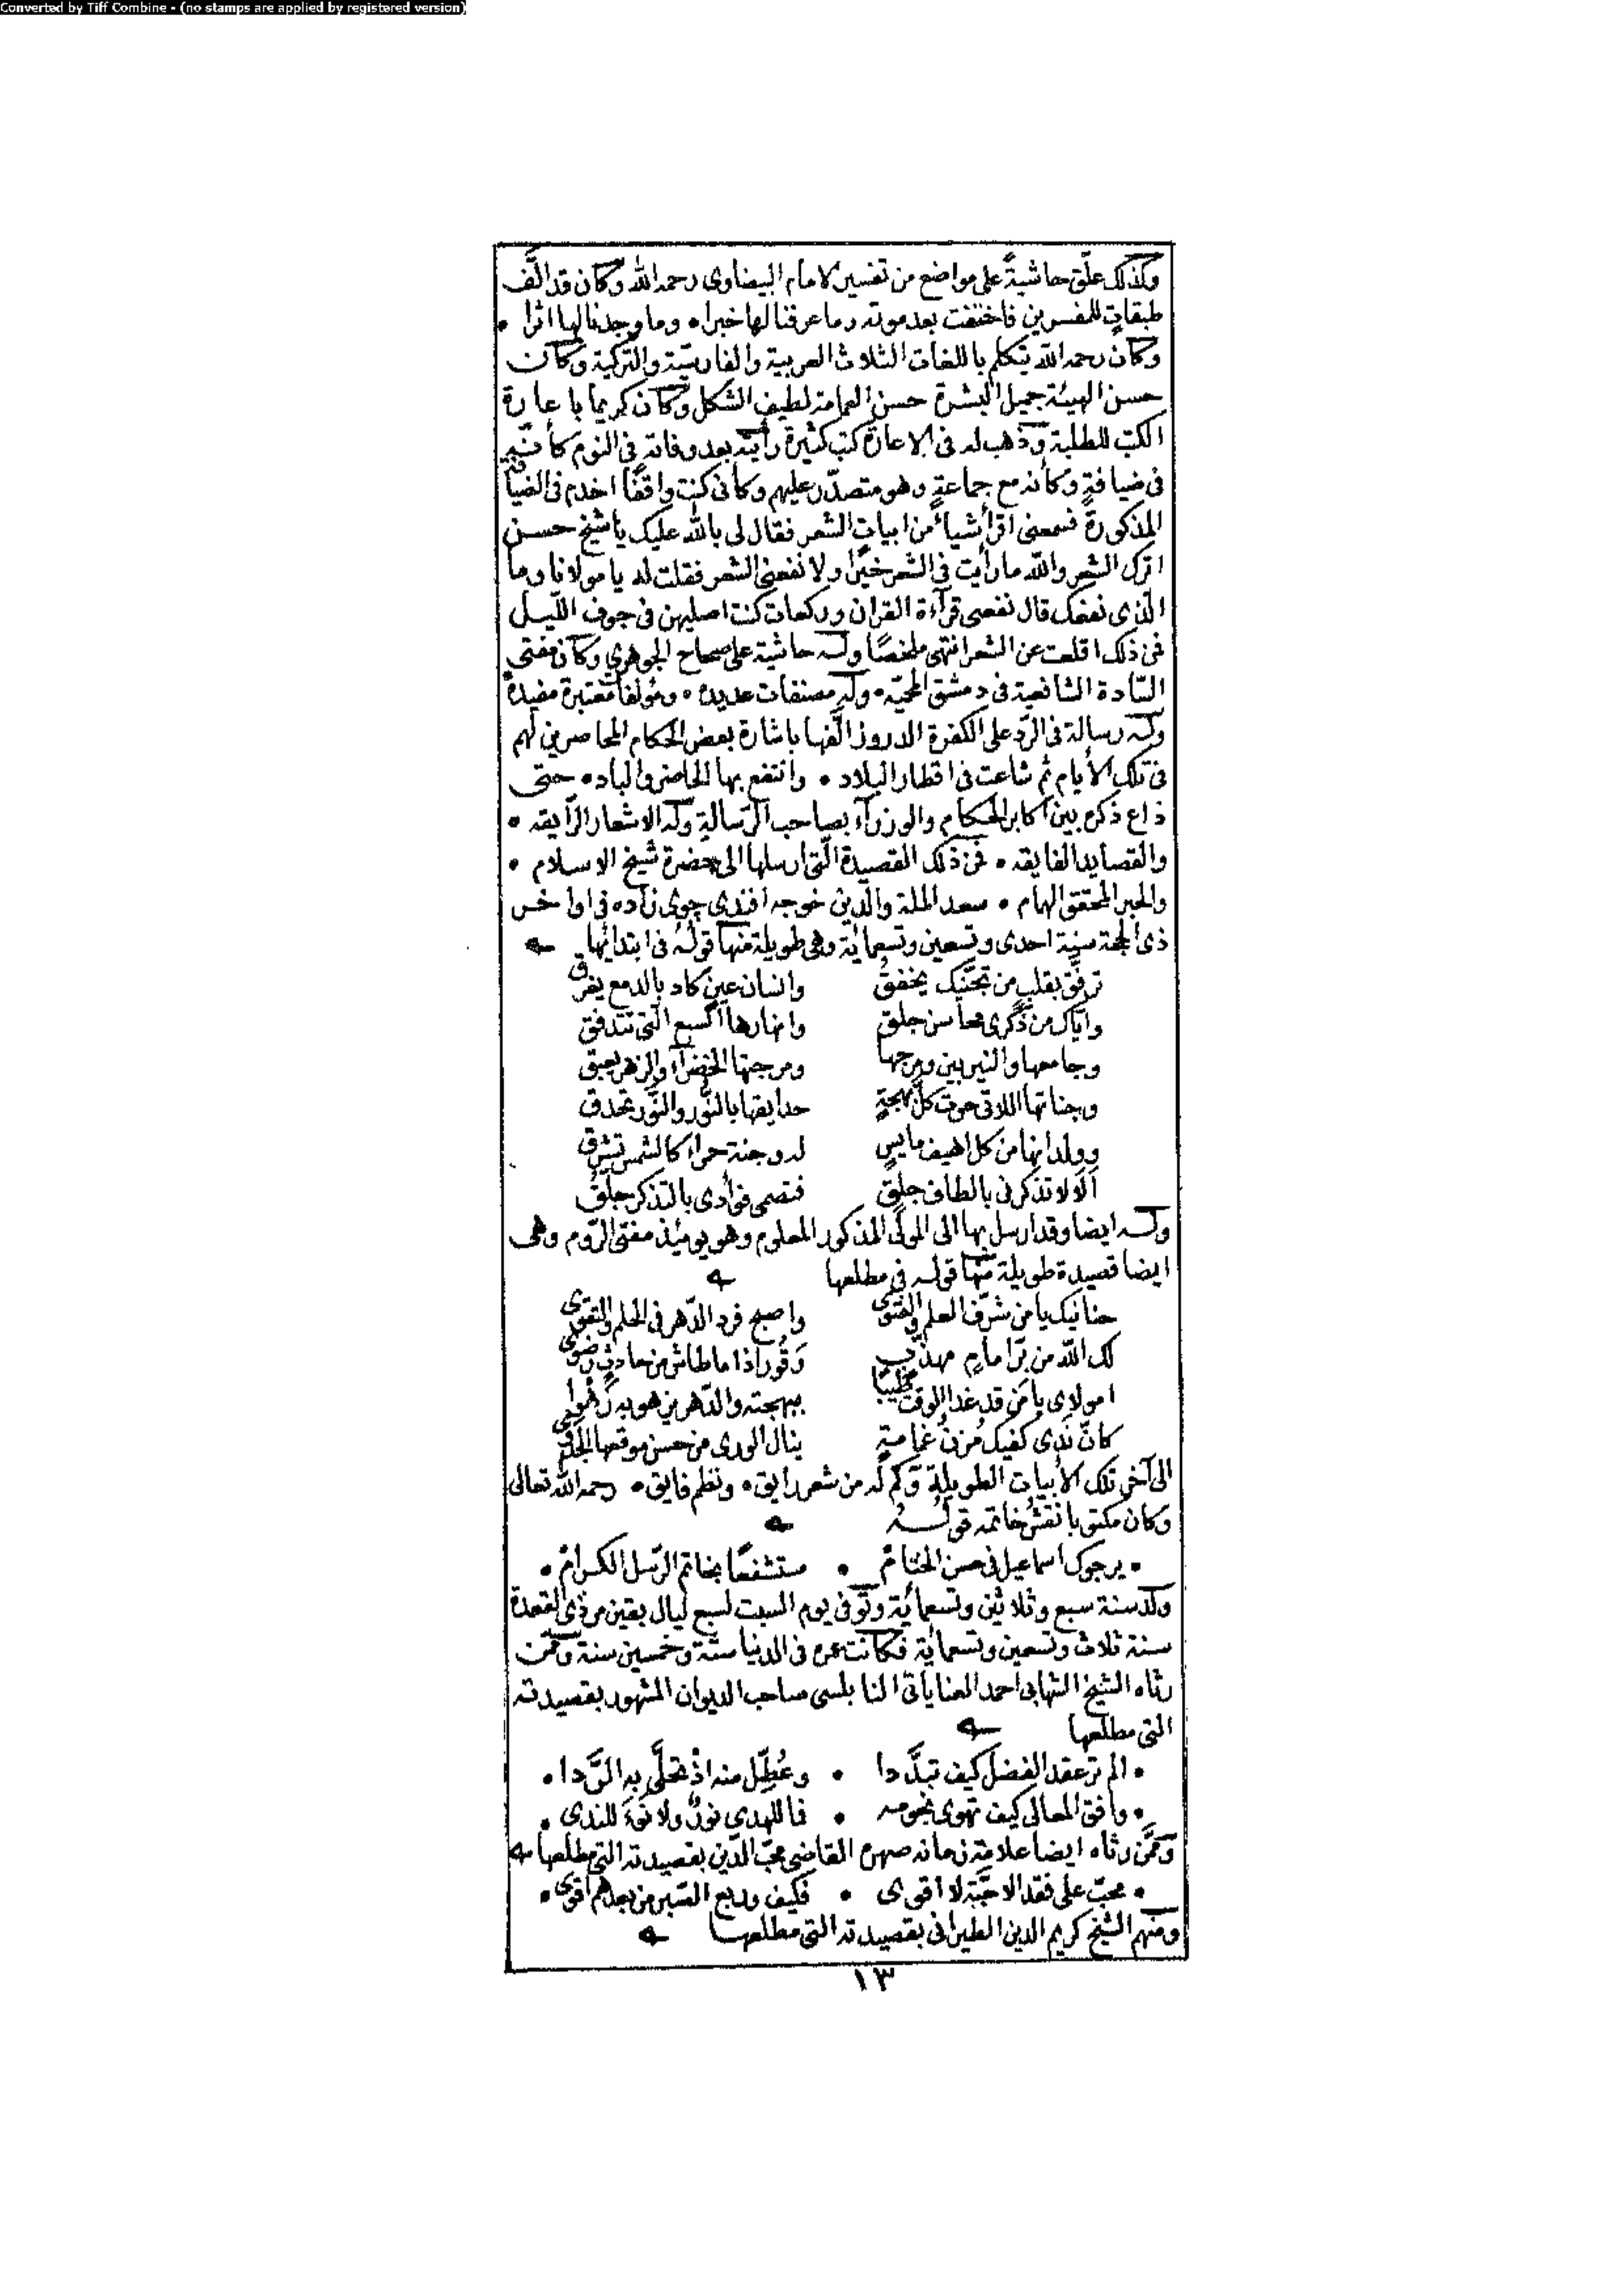 Converted by Tiff Combine - (no stamps are applied by registered version)
وكذلك علّق حاشيةً على مواضع من تفسير الامام البيضاوى رحمه الله وكان قد الّف
طبقات للمفسرين فاختفت بعد موته وما عرفنا لها خبرا • وما وجدنا لها اثرا •
وكان رحمه الله يتكلم باللغات الثلاث العربية والفارسيّة والتركية وكان
حسن الهيئة جميل البشرة حسن العمامة لطيف الشكل وكان كريما باعارة
الكتب للطلبة وذهب له فى الاعارة كتب كثيرة رأيته بعد وفاته فى النوم كأننى
فى ضيافةٍ وكأنه مع جماعةٍ وهو متصدّر عليهم وكأنى كنت واقفًا اخدم فى الضيافة
المذكورة فسمعنى اقرأ شيأً من ابيات الشعر فقال لى بالله عليك يا شيخ حسن
اترك الشعر والله ما رأيت فى الشعر خيرًا ولا نفعنى الشعر فقلت له يا مولانا وما
الّذى نفعك قال نفعنى قرآءة القران وركعات كنت اصليهن فى جوف اللّيل
فمن ذلك اقلعت عن الشعر انتهى ملخصًا وله حاشية على صحاح الجوهري وكان مفتى
السّادة الشافعية فى دمشق المحميّه • وله مصنفات عديده • ومؤلفات معتبرة مفيدة
وله رسالة فى الرّد على الكفرة الدروز الّفها باشارة بعض الحكام المحاصرين لهم
فى تلك الأيام ثم شاعت فى اقطار البلاد • وانتفع بها الحاضر والباد • حتى
ذاع ذكره بين اكابر الحكام والوزرآء بصاحب الرّسالة وله الاشعار الرّايقه •
والقصايد الفايقه • فمن ذلك القصيدة الّتى ارسلها الى حضرة شيخ الاسلام •
والحبر المحقق الهمام • سعد الملة والدّين خوجه افندى جوى زاده فى اواخر
ذى الحجة سنة احدى وتسعين وتسعمائة وهى طويلة منها قوله فى ابتدائها
ترفّق بقلبٍ من تجنّيك يخفقُ وانسان عينٍ كاد بالدمع يغرق
واياك من ذكرى محاسن جلق وانهارها السبع الّتى تتدفق
وجامعها والنيربين ومرجها ومرجتها الخضرآء والزهر يعبق
وجناتها اللاتى حوت كلّ بهجةٍ حدايقها بالنَّور والنُّور تحدق
وولدانها من كل اهيف مايسٍ له وجنة حمراء كالشمس تشرق
اَلا لا تذكرنى بالطاف جلقٍ فتصمى فؤادى بالتذكر جلقُ
وله ايضا وقد ارسل بها الى المولى المذكور المعلوم وهو يومئذ مفتى الرّوم وهى
ايضا قصيدة طويلة منها قوله فى مطلعها
حنانيك يا من شرّف العلم والفتوى واصبح فرد الدّهر فى الحلم والتقوى
لك الله من برّ امامٍ مهذّبٍ وَقُورا اذا ما طاش من حادثٍ رضوى
امولاى يا من قد غدا الوقت طيبًا ببهجته والدّهر من هو به
كانّ نَدى كفيك مُزنُ غمامةٍ ينال الورى من حسن موقعها الجدوى
الى آخر تلك الأبيات الطويلة وكم له من شعر رايق • ونظم فايق • رحمه الله تعالى
وكان مكتوبا نقش خاتمه قوله
• يرجوك اسماعيل فى حسن الختام • مستشفعًا بخاتم الرّسل الكرام •
ولد سنة سبع وثلاثين وتسعمائة وتوفى يوم السبت لسبع ليال بقين من ذى القعدة
سنة ثلاث وتسعين وتسعمائة فكانت عمره فى الدنيا ستة وخمسين سنة وممّن
رثاه الشيخ الشهابى احمد العناياتى النابلسى صاحب الديوان المشهور بقصيدته
التى مطلعها
• الم تر عقد الفضل كيف تبدّدا • وعُطِّل منه اذ تحلَّى به الرَّدا •
• وافق المعالى كيف تهوى نجومه • فما للهدى نورٌ ولا نوءَ للندى •
وممَّن رثاه ايضا علامة زمانه صهره القاضى محبّ الدّين بقصيدته التى مطلعها
• محبّ على فقد الاحبّة لا اقوى • فكيف وربع الصّبر من بعدهم اقوى •
ومنهم الشيخ كريم الدين الطيرانى بقصيدته التى مطلعها
١٣